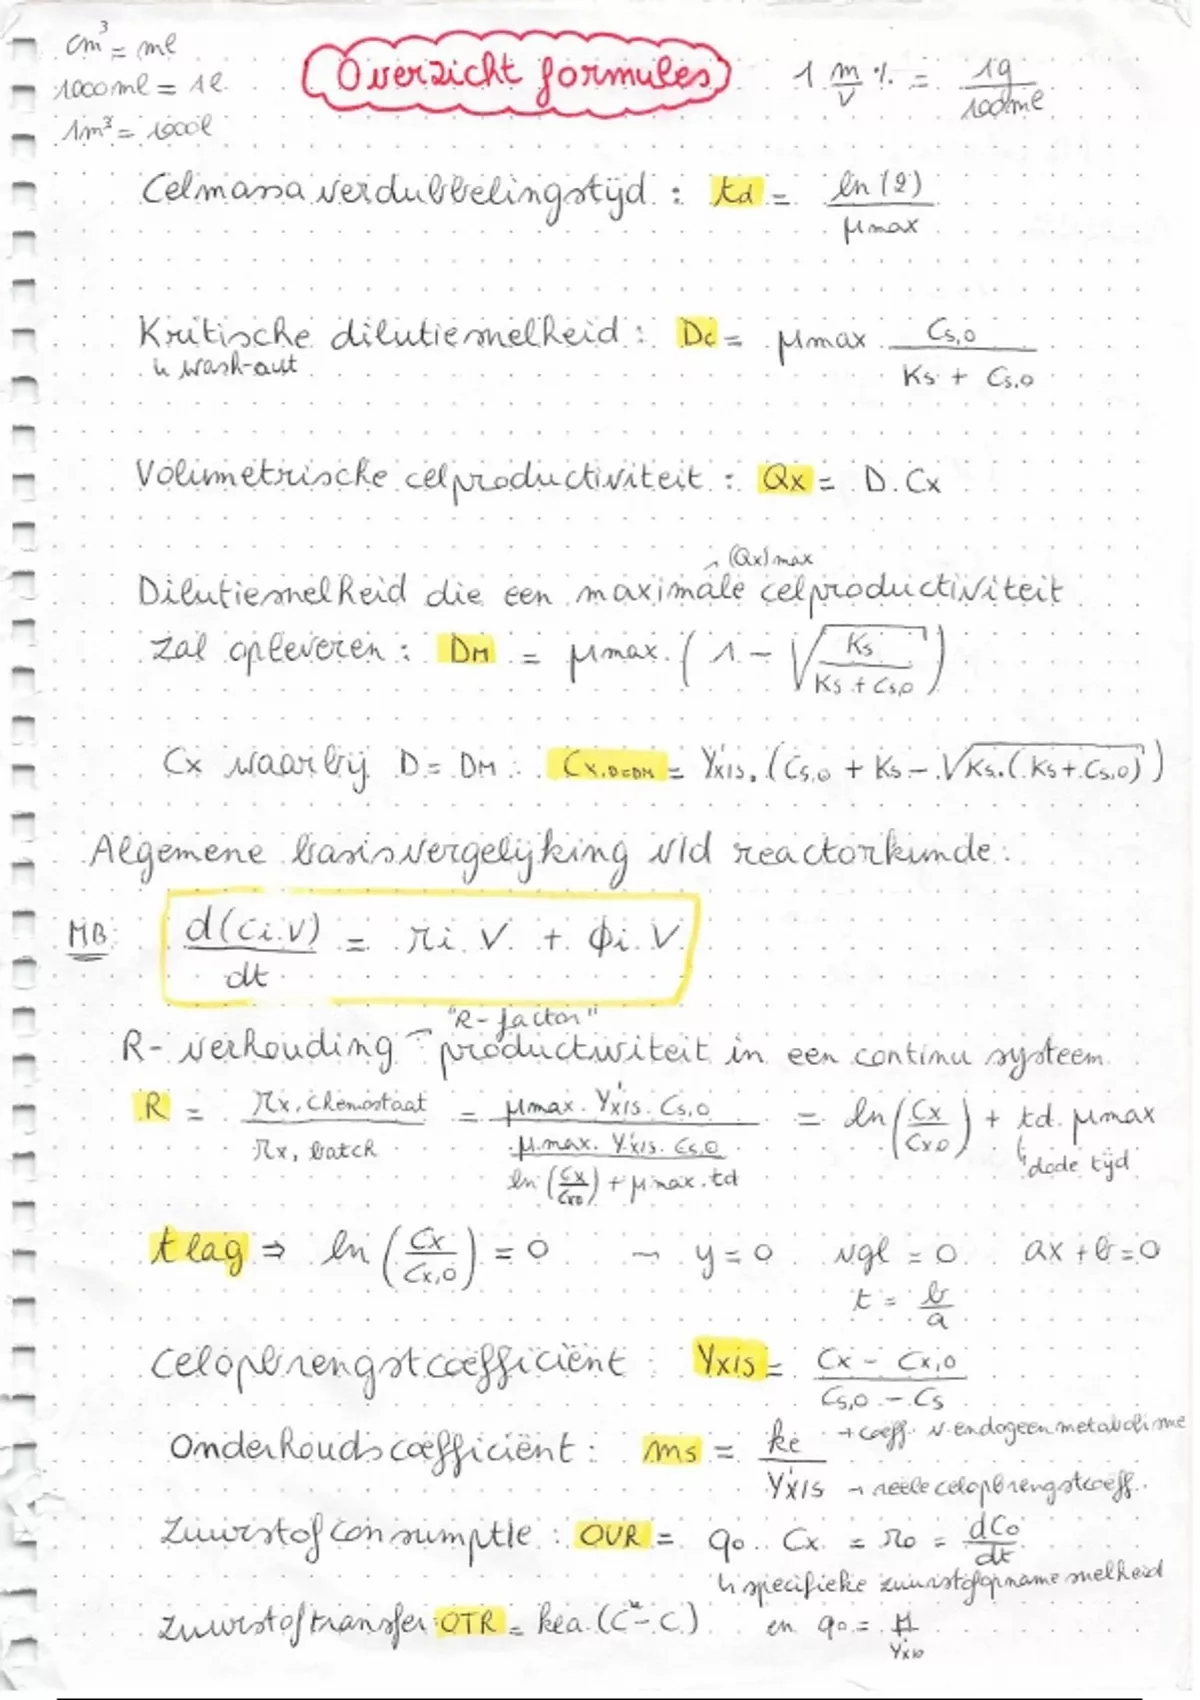 cm³ = ml
1000 ml = 1l
1m³ = 1000l
Overzicht formules
1 m/v % = 1g / 100ml
Celmassaverdubbelingstijd : td = ln(2) / μmax
Kritische dilutiesnelheid : Dc = μmax Cs,0 / (Ks + Cs,0)
↳ wash-out
Volumetrische celproductiviteit : Qx = D . Cx
→ (Qx)max
Dilutiesnelheid die een maximale celproductiviteit
zal opleveren : DM = μmax . (1 - √(Ks / (Ks + Cs,0)))
Cx waarbij D = DM : Cx,D=DM = Y'x/s . (Cs,0 + Ks - √(Ks.(Ks + Cs,0)))
Algemene basisvergelijking v/d reactorkunde :
MB: d(ci.V) / dt = ri. V + ϕi. V
"R-factor"
R-verhouding → productiviteit in een continu systeem
R = rx,chemostaat / rx,batch = μmax. Y'x/s. Cs,0 / (μmax. Y'x/s. Cs,0 / (ln(Cx/Cx0) + μmax.td)) = ln(Cx/Cx0) + td. μmax
↳ dode tijd
t lag ⇒ ln(Cx / Cx,0) = 0 → y = 0 vgl = 0 ax + b = 0
t = b / a
Celopbrengstcoëfficiënt : Yx/s = (Cx - Cx,0) / (Cs,0 - Cs)
Onderhoudscoëfficiënt : ms = ke / Y'x/s → coëff. v. endogeen metabolisme
→ reële celopbrengstcoëff.
Zuurstofconsumptie : OUR = qo . Cx = ro = dCo / dt
↳ specifieke zuurstofopname snelheid
Zuurstoftransfer OTR = kla.(C* - C) en qo = μ / Yx/o